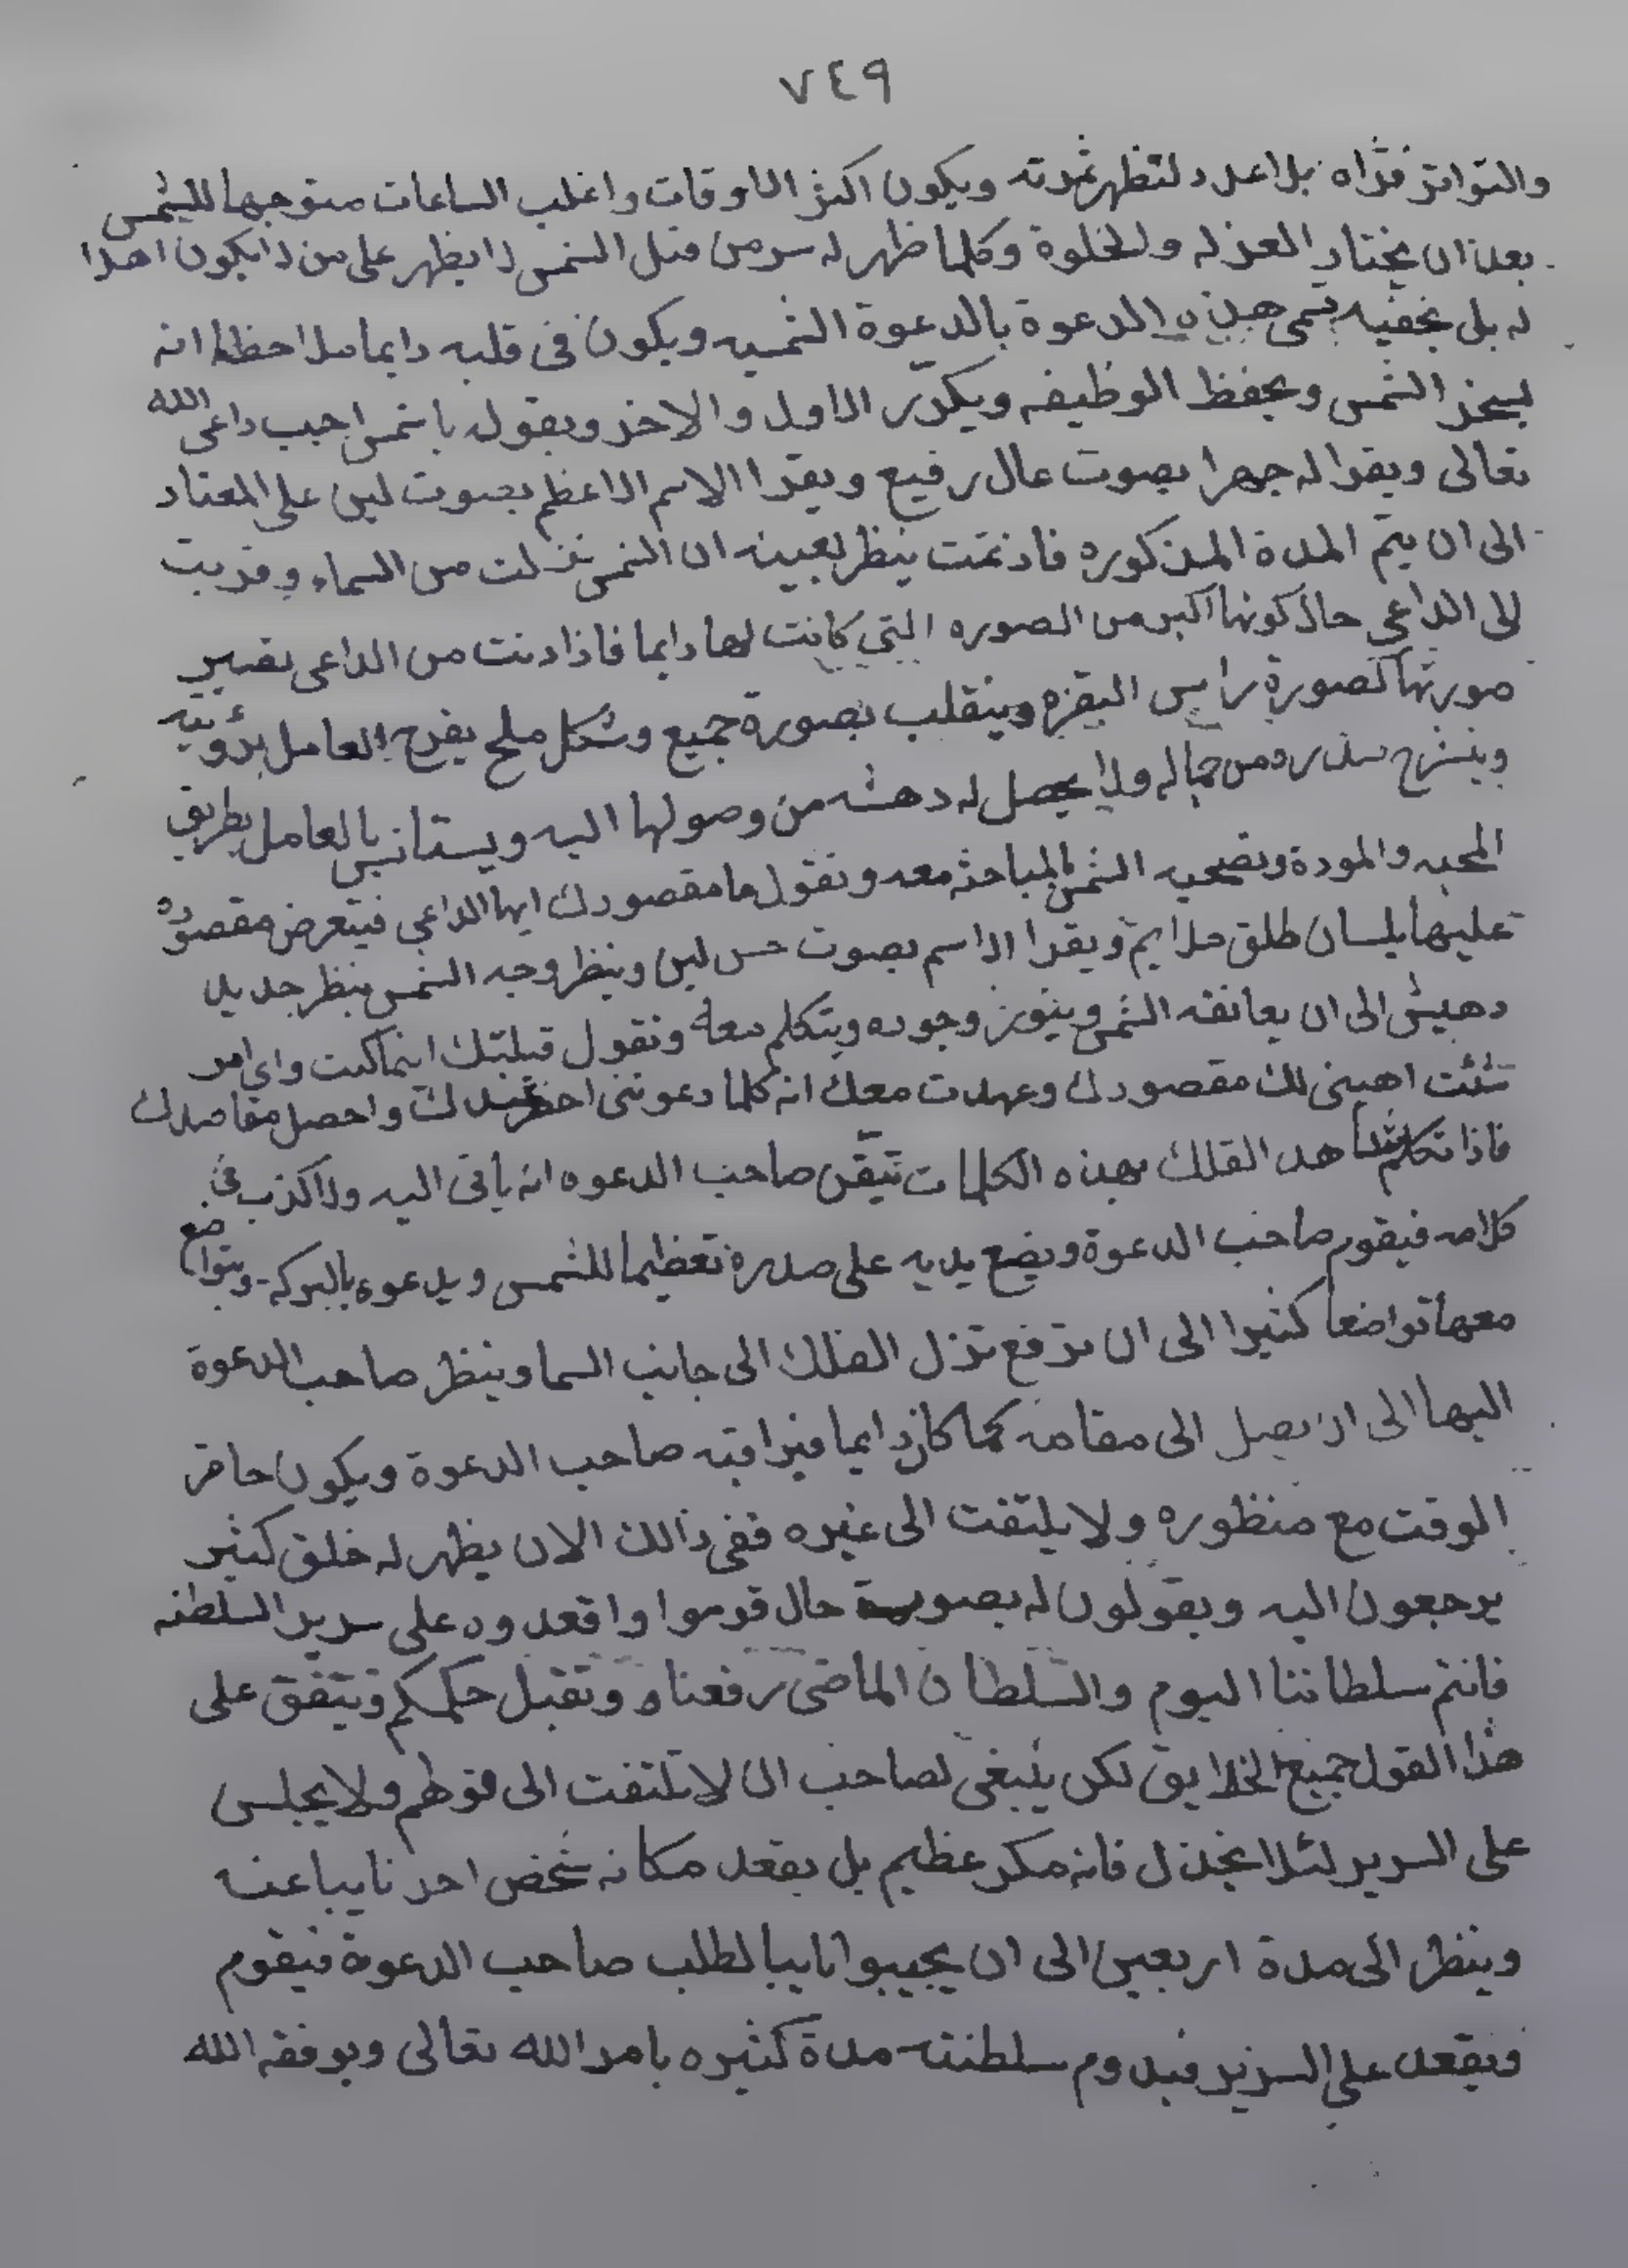 ٧٤٩
والتواتر قراه بلا عدد لتظهر ثمرته ويكون اكثر الاوقات واغلب الساعات متوجها للشمس
بعد ان يختار العزله والخلوة وكلما ظهر له سر من قبل الشمس لا يظهر على من لا يكون اهلا
له بل يخفيه تسمى هذه الدعوة بالدعوة الشمسيه ويكون في قلبه دايما ملاحظا انه
يسخر الشمس ويحفظ الوظيفه ويكرر الاول والاخر ويقول يا شمس اجب داعى الله
تعالى ويقرا له جهرا بصوت عال رفيع ويقرا الاسم الاعظم بصوت لين على المعتاد
الى ان يتم المدة المذكوره فاذ تمت ينظر بعينه ان الشمس نزلت من السماء وقربت
الى الداعي حال كونها اكبر من الصوره التي كانت لها دايما فاذا دنت من الداعى تصير
صورتها كصورة راس البقره وينقلب بصورة جميع وشكل ملح يفرح العامل برؤيته
وينشرح صدره من جماله ولا يحصل له دهشه من وصولها اليه ويستانس بالعامل بطريق
المحبه والمودة وتصحبه الشمس بالمباحثه معه وتقول ما مقصودك ايها الداعي فيتعرض مقصوده
عليها بلسان طلق ملايم ويقرا الاسم بصوت حسن لين وينظر وجه الشمس بنظر جديد
دهيش الى ان يعانقه الشمس وينور وجوده ويتكلم معه وتقول قبلتك اينما كنت واي امر
شئت اهيئ لك مقصودك وعهدت معك انه كلما دعوتنى احضر عندك واحصل مقاصدك
فاذا تكلم شاهد الفلك بهذه الكلمات تيقن صاحب الدعوه انه ياتى اليه ولا كذب في
كلامه فيقوم صاحب الدعوة ويضع يديه على صدره تعظيما للشمس ويدعوه بالبركه ويتواضع
معها تواضعا كثيرا الى ان ترفع تزل الفلك الى جانب السما وينظر صاحب الدعوة
اليها الى ان يصل الى مقامه كما كان دايما فيراقبه صاحب الدعوة ويكون حاضر
الوقت مع منظوره ولا يلتفت الى غيره ففى ذالك الان يظهر له خلق كثير
يرجعون اليه ويقولون له بصوت حال قوموا واقعدوه على سرير السلطنه
فانتم سلطاننا اليوم والسلطان الماضى رفعناه ونقبل حكمكم ويتفق على
هذا القول جميع الخلايق لكن ينبغى لصاحب ان لا يلتفت الى قولهم ولا يجلس
على السرير لئلا يخذل فانه مكر عظيم بل يقعد مكانه شخص احد نايبا عنه
وينظر الى مدة اربعين الى ان يجيبوا نايبا لطلب صاحب الدعوة فيقوم
ويقعد على السرير فيدوم سلطنته مدة كثيره بامر الله تعالى ويوفقه الله